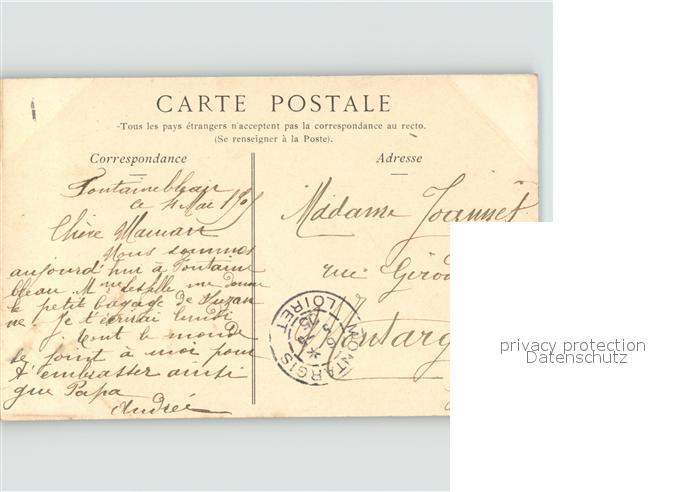 CARTE POSTALE
-Tous les pays étrangers n'acceptent pas la correspondance au recto.
(Se renseigner à la Poste).
Correspondance
Adresse
Fontainebleau
ce 4 Mai
Chère Maman
Nous sommes
aujourd'hui à Fontaine
bleau. Mme me donne
le petit bagage de Suzan
ne Je t'écrirai lundi
tout le monde
se joint à moi pour
t'embrasser ainsi
que Papa
Andrée
Madame Joannet
rue Girod
Montarg
MONTARGIS
LOIRET
privacy protection
Datenschutz